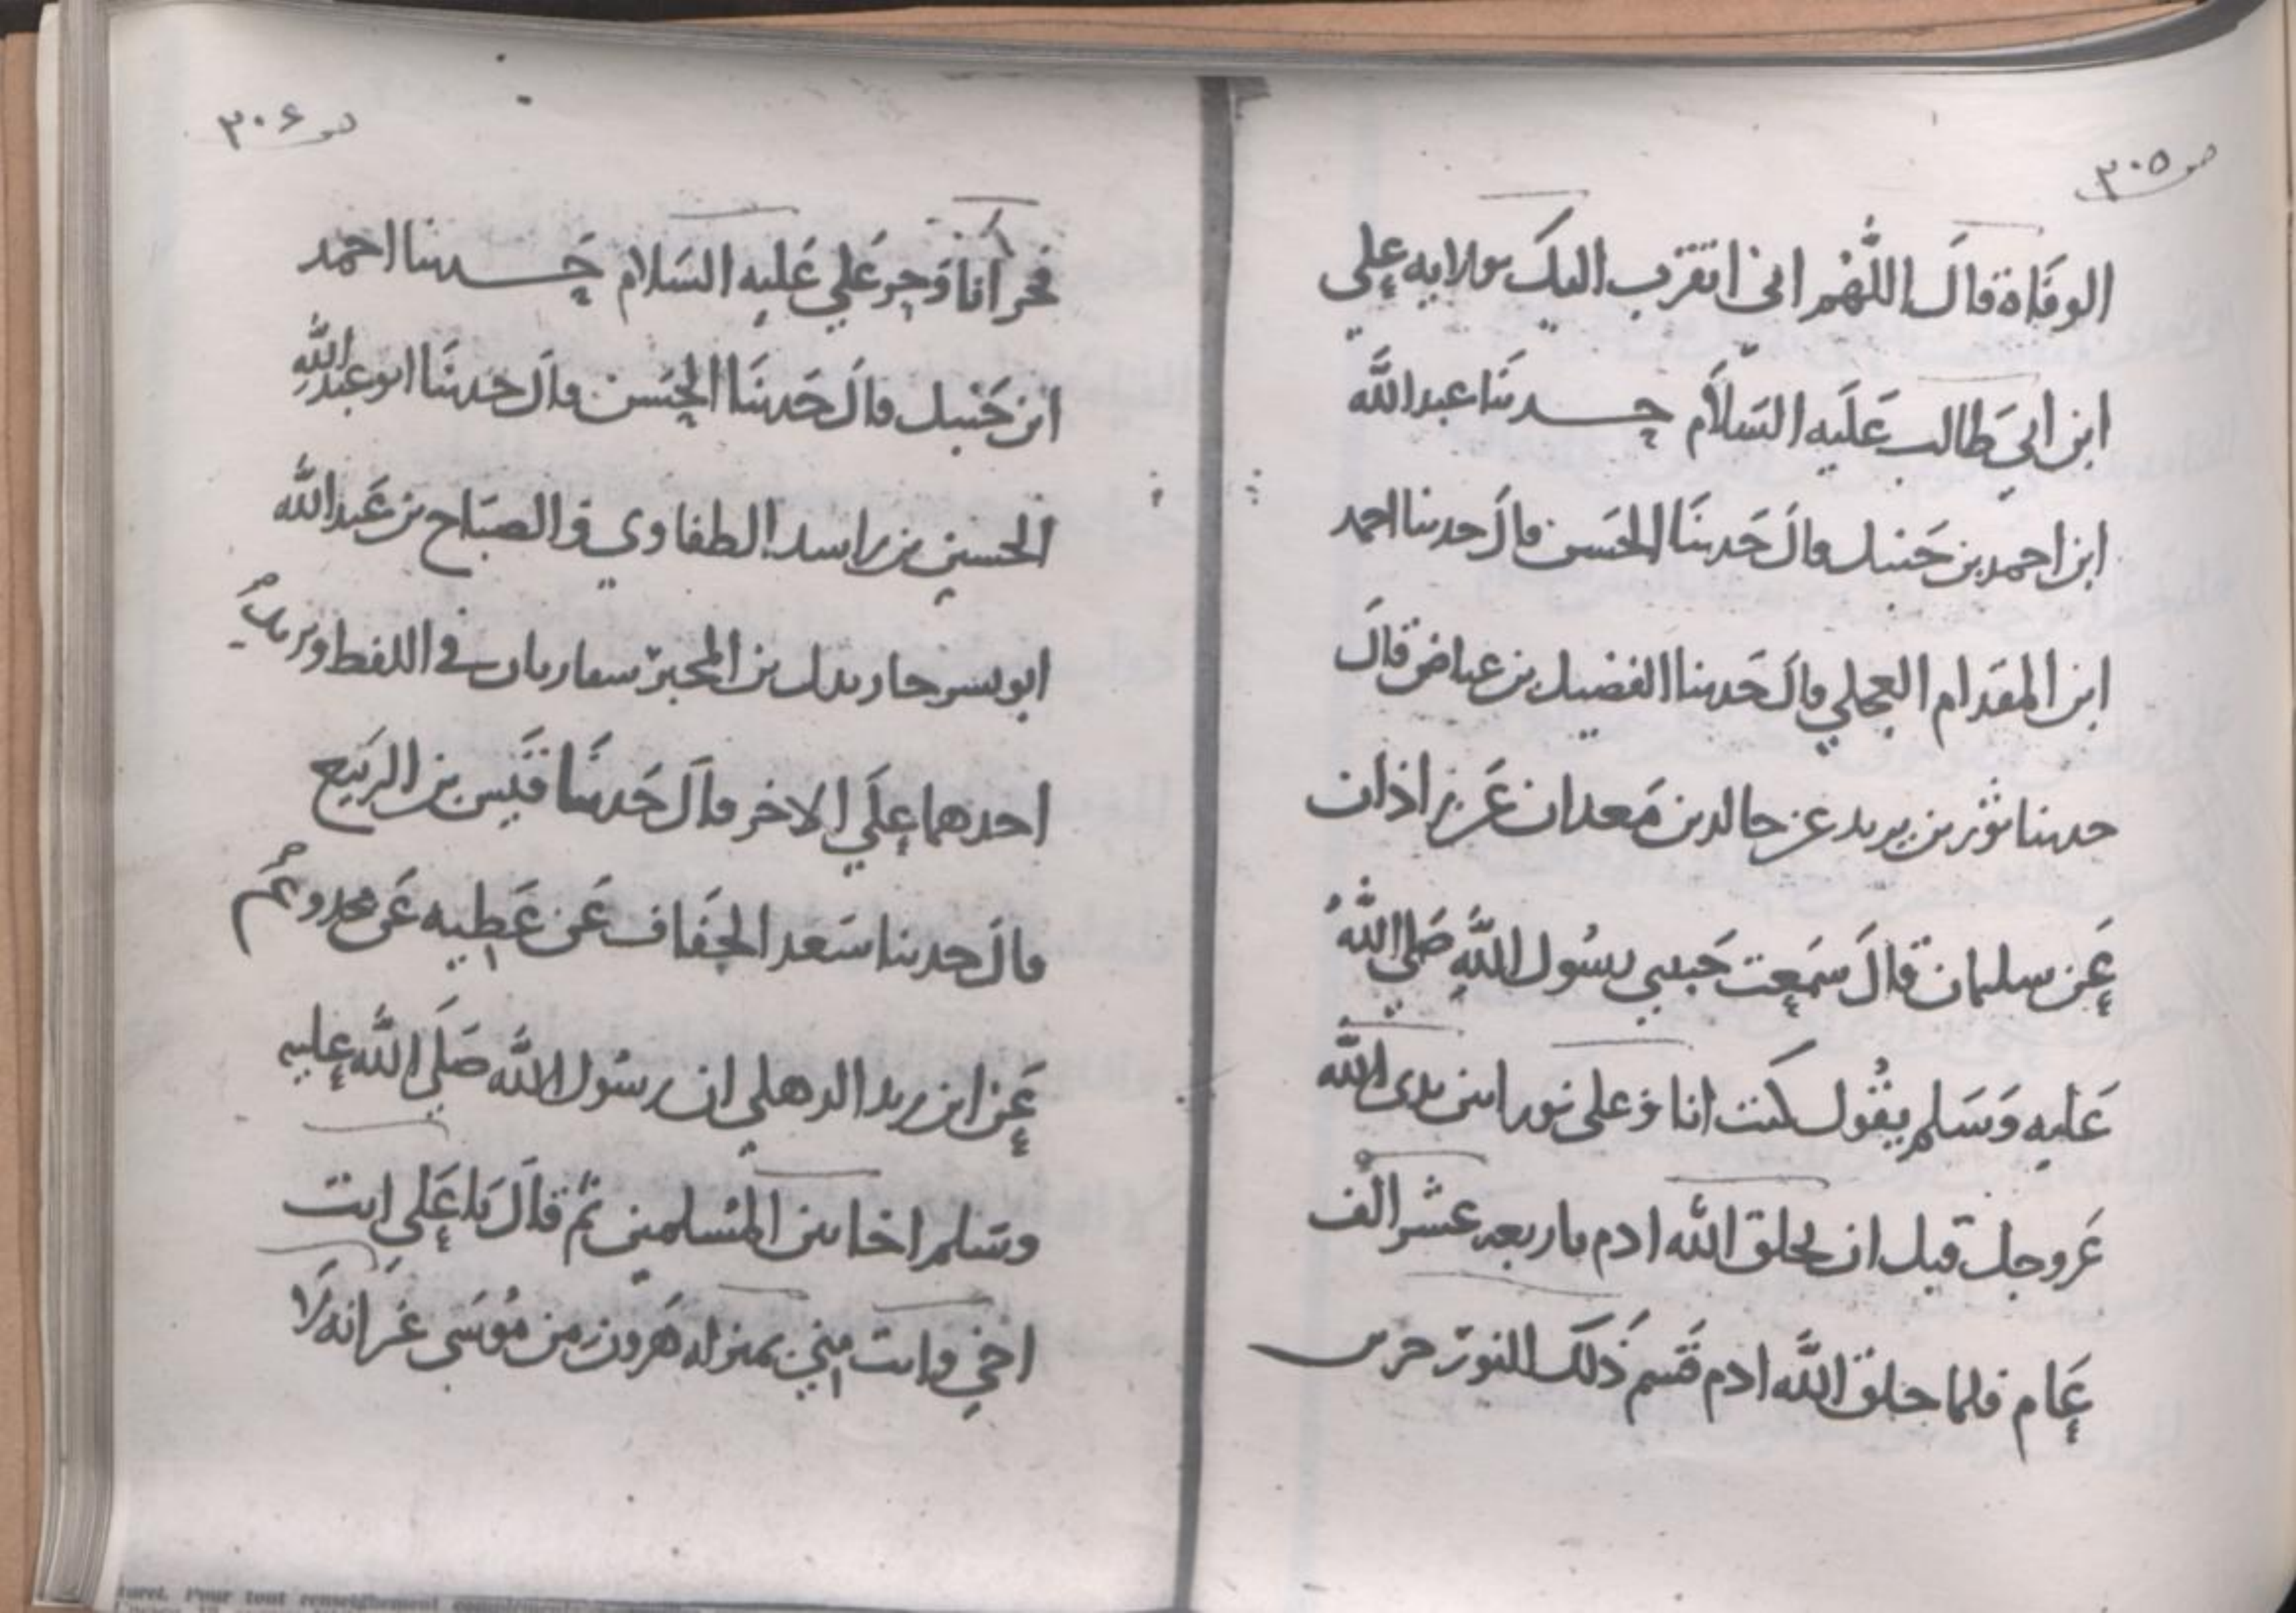 ص ٣٠٥
الوفاة قال اللهم اني اتقرب اليك بولايه علي
ابن ابي طالب عليه السلام حدثنا عبد الله
ابن احمد بن حنبل قال حدثنا الحسن قال حدثنا احمد
ابن المقدام العجلي قال حدثنا الفضيل بن عياض قال
حدثنا ثور بن يزيد عن خالد بن معدان عن زاذان
عن سلمان قال سمعت حبيبي رسول الله صلى الله
عليه وسلم يقول كنت انا وعلى نورا بين يدى الله
عز وجل قبل ان يخلق الله ادم باربعه عشر الف
عام فلما خلق الله ادم قسم ذلك النور جزءين
ص ٣٠٦
فجزء انا وجزء علي عليه السلام حدثنا احمد
ابن حنبل قال حدثنا الحسن قال حدثنا ابو عبد الله
الحسين بن راشد الطفاوي والصباح بن عبد الله
ابو بشر جار بدل بن المحبر يتقاربان في اللفظ ويزيد
احدهما علي الاخر قال حدثنا قيس بن الربيع
قال حدثنا سعد الخفاف عن عطيه عن محدوج
عن ابن زيد الذهلي ان رسول الله صلى الله عليه
وسلم اخا بين المسلمين ثم قال يا علي انت
اخي وانت مني بمنزله هرون من موسى غير انه لا